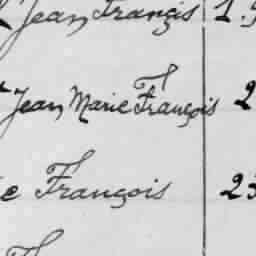 Jean Françis 1.
Jean Marie François 2
e François 23